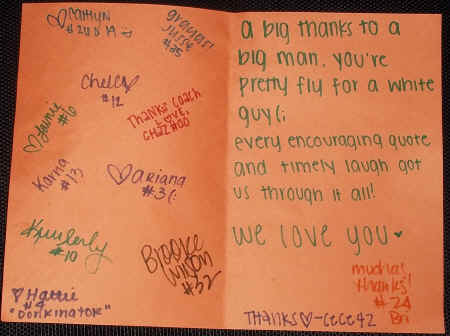 CAITLYN
#2UD14
gracias!
Jesse
#25
Chelc
#12
THANKS COACH
LOVE,
CHAZ#00
#6
Karna
#13
ariana
#3(:
Kimberly
#10
Brooke
Wilson
#32
♥ Hattie
#4
"DONKINATOR"
a big thanks to a
big man. you're
pretty fly for a white
guy(;
every encouraging quote
and timely laugh got
us through it all!
we love you ♥
mucha!
thanks!
#24
Bri
THANKS♡-CeCe42